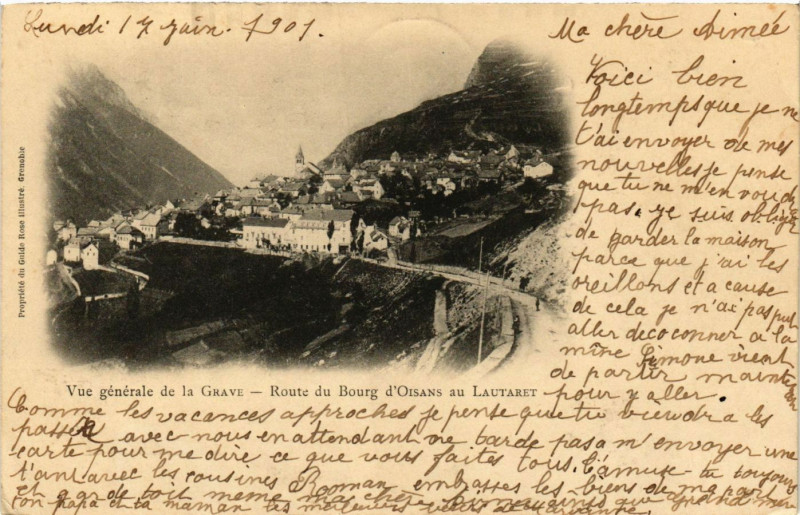 Lundi 17 juin. 1901.
Ma chère Aimée
Voici bien
longtemps que je ne
t'ai envoyer de mes
nouvelles je pense
que tu ne m'en voudra
pas, je suis obliger
de garder la maison
parce que j'ai les
oreillons et a cause
de cela je n'ai pas put
aller decoconner a la
mîne Simone vient
de partir mainte
nan
pour y aller.
Propriété du Guide Rose illustré. Grenoble
Vue générale de la GRAVE — Route du Bourg d'OISANS au LAUTARET
Comme les vacances approches je pense que tu viewdra les
passer avec nous en attendant ne tarde pas a m'envoyer une
carte pour me dire ce que vous faites tous. t'amuse-tu toujours
tant avec les cousines embrasses les biens de ma part
et garde toit meme ma chère que grand mère
ton papa et ta maman les meilleurs